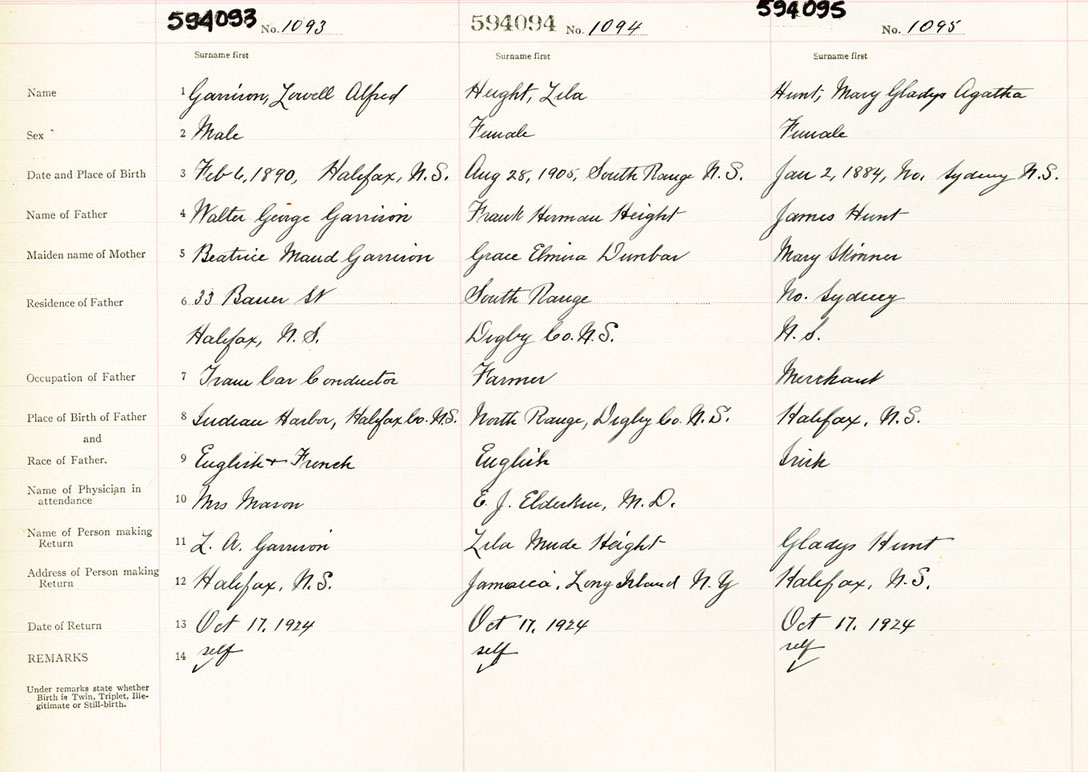 594093 No. 1093 594094 No. 1094 594095 No. 1095
Surname first Surname first Surname first
Name 1 Garrison, Lowell Alfred Height, Zila Hunt, Mary Gladys Agatha
Sex 2 Male Female Female
Date and Place of Birth 3 Feb 6, 1890, Halifax, N.S. Aug 28, 1905, South Range N.S. Jan 2, 1884, No. Sydney N.S.
Name of Father 4 Walter George Garrison Frank Herman Height James Hunt
Maiden name of Mother 5 Beatrice Maud Garrison Grace Elmira Dunbar Mary Skinner
Residence of Father 6 33 Bauer St South Range No. Sydney
Halifax, N.S. Digby Co. N.S. N.S.
Occupation of Father 7 Tram Car Conductor Farmer Merchant
Place of Birth of Father 8 Indian Harbor, Halifax Co. N.S. North Range, Digby Co. N.S. Halifax, N.S.
and
Race of Father. 9 English + French English Irish
Name of Physician in
attendance 10 Mrs Mason E. J. Elderkin, M.D.
Name of Person making
Return 11 L. A. Garrison Zila Height Gladys Hunt
Address of Person making
Return 12 Halifax, N.S. Jamaica, Long Island N.Y Halifax, N.S.
Date of Return 13 Oct 17, 1924 Oct 17, 1924 Oct 17, 1924
REMARKS 14 self self self
Under remarks state whether
Birth is Twin, Triplet, Ille-
gitimate or Still-birth.